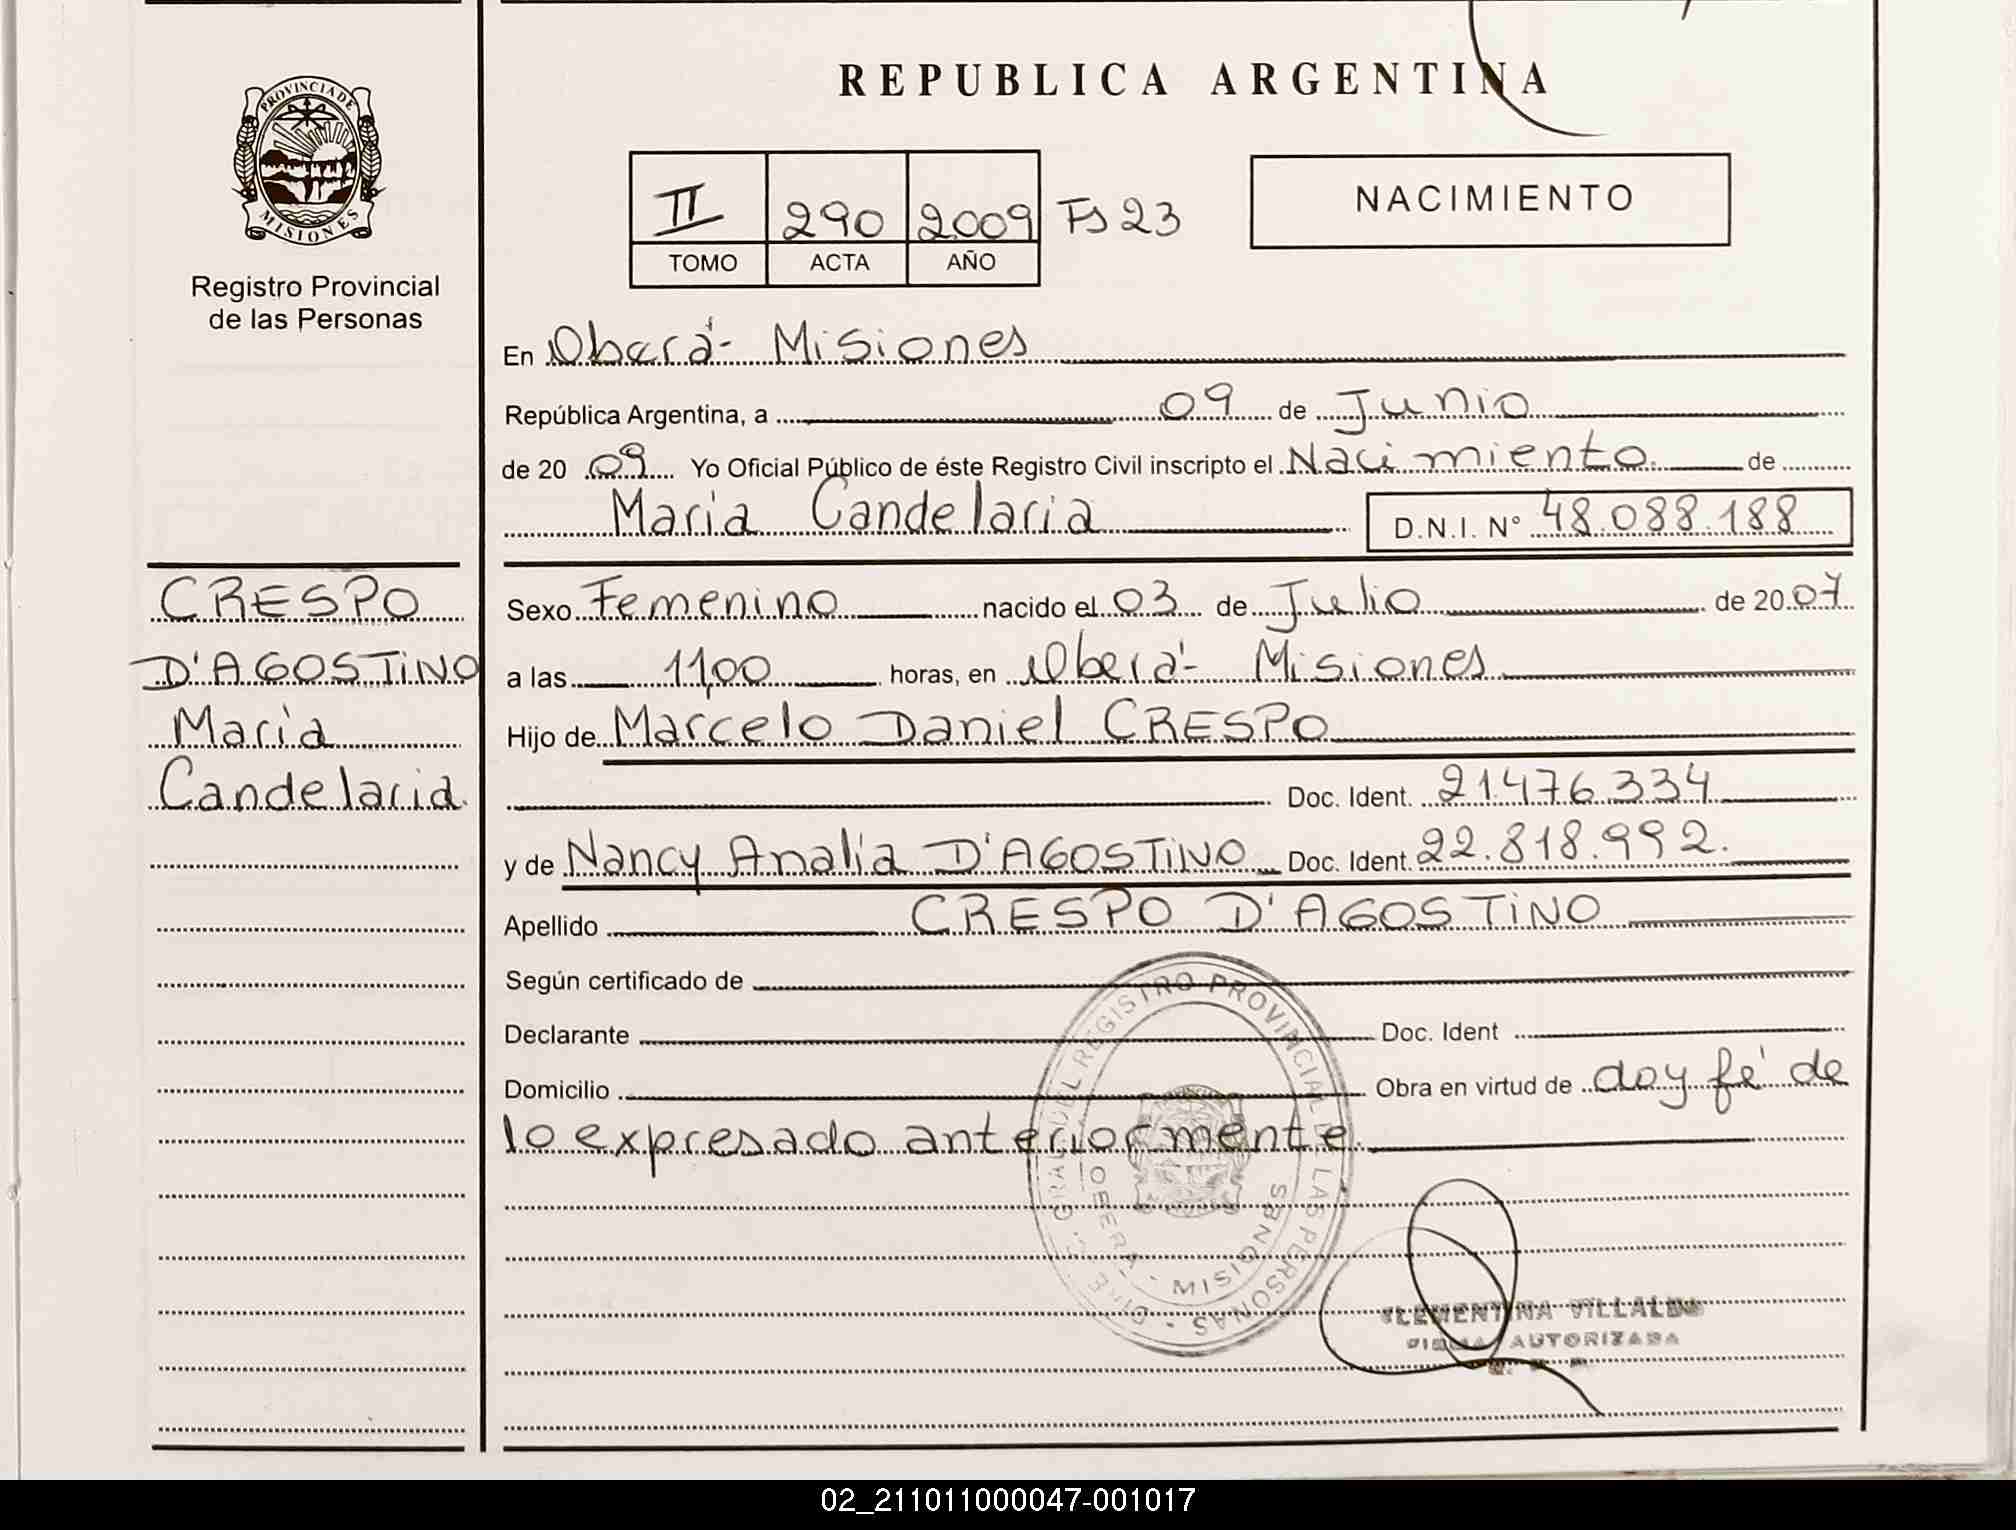 REPUBLICA ARGENTINA
PROVINCIA DE
MISIONES
Registro Provincial
de las Personas
II 290 2009 Fs 23
TOMO ACTA AÑO
NACIMIENTO
En Oberá - Misiones
República Argentina, a 09 de Junio
de 20 09 Yo Oficial Público de éste Registro Civil inscripto el Nacimiento de
María Candelaria D.N.I. N° 48.088.188
CRESPO
D'AGOSTINO
María
Candelaria.
Sexo Femenino nacido el 03 de Julio de 20 07
a las 11,00 horas, en Oberá - Misiones
Hijo de Marcelo Daniel CRESPO
Doc. Ident. 21.476.334
y de Nancy Analía D'AGOSTINO Doc. Ident. 22.818.992.
Apellido CRESPO D'AGOSTINO
Según certificado de
Declarante Doc. Ident
Domicilio Obra en virtud de doy fé de
lo expresado anteriormente.
GRAL. DEL REGISTRO PROVINCIAL DE LAS PERSONAS
OBERA - MISIONES
CLEMENTINA VILLALBA
FIRMA AUTORIZADA
02_211011000047-001017